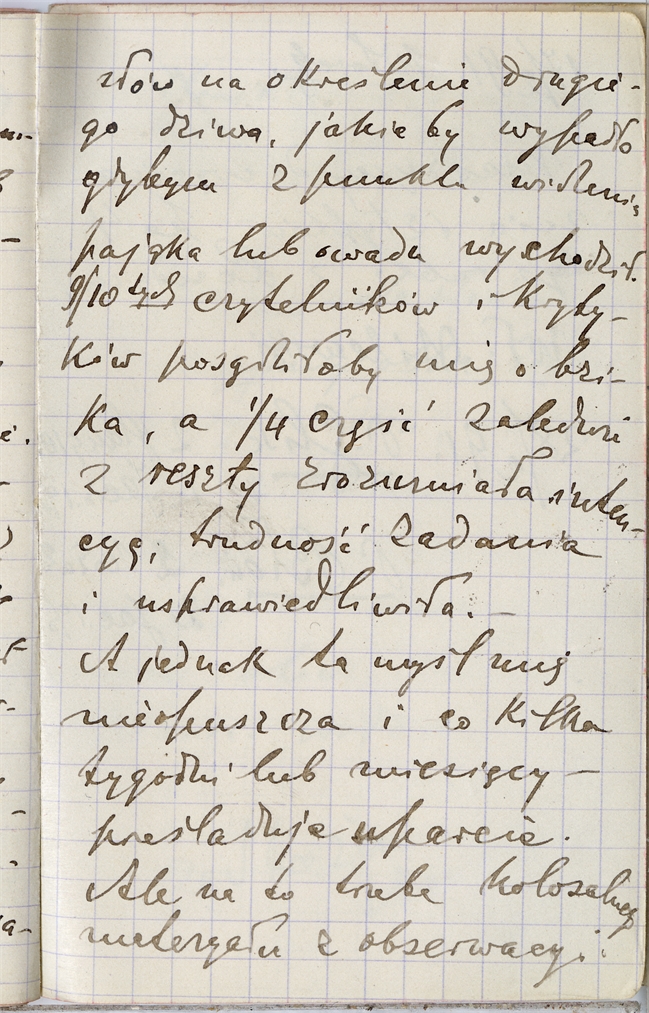 słów na określenie drugie-
go dziwa, jakie by wypadło
gdybym z punktu widzenia
pająka lub owadu wychodził.
9/10 tych czytelników i kryty-
ków posądziłaby mię o bzi-
ka, a 1/4 część zaledwie
z reszty zrozumiała inten-
cyę, trudność zadania
i usprawiedliwiła. –
A jednak ta myśl mię
nieopuszcza i co kilka
tygodni lub miesięcy –
prześladuje uparcie.
Ale na to trzeba kolosalnego
materyału z obserwacyi.